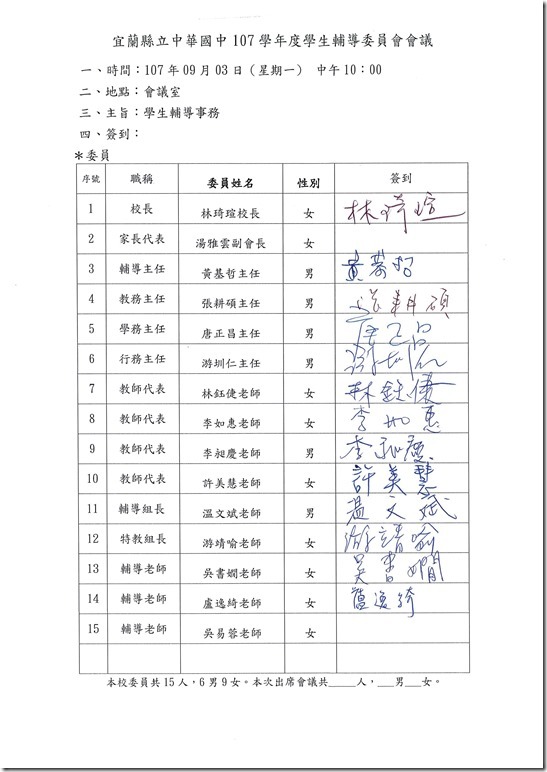 宜蘭縣立中華國中 107 學年度學生輔導委員會會議
一、時間：107 年 09 月 03 日（星期一） 中午 10：00
二、地點：會議室
三、主旨：學生輔導事務
四、簽到：
＊委員
序號 職稱 委員姓名 性別 簽到
1 校長 林琦瑄校長 女 林琦瑄
2 家長代表 湯雅雲副會長 女
3 輔導主任 黃基哲主任 男 黃基哲
4 教務主任 張耕碩主任 男 張耕碩
5 學務主任 唐正昌主任 男 唐正昌
6 行務主任 游圳仁主任 男
7 教師代表 林鈺倢老師 女 林鈺倢
8 教師代表 李如惠老師 女 李如惠
9 教師代表 李昶慶老師 男 李昶慶
10 教師代表 許美慧老師 女 許美慧
11 輔導組長 溫文斌老師 男 溫文斌
12 特教組長 游靖喻老師 女 游靖喻
13 輔導老師 吳書嫺老師 女 吳書嫺
14 輔導老師 盧逸綺老師 女 盧逸綺
15 輔導老師 吳易蓉老師 女
本校委員共 15 人，6 男 9 女。本次出席會議共_____人，___男___女。